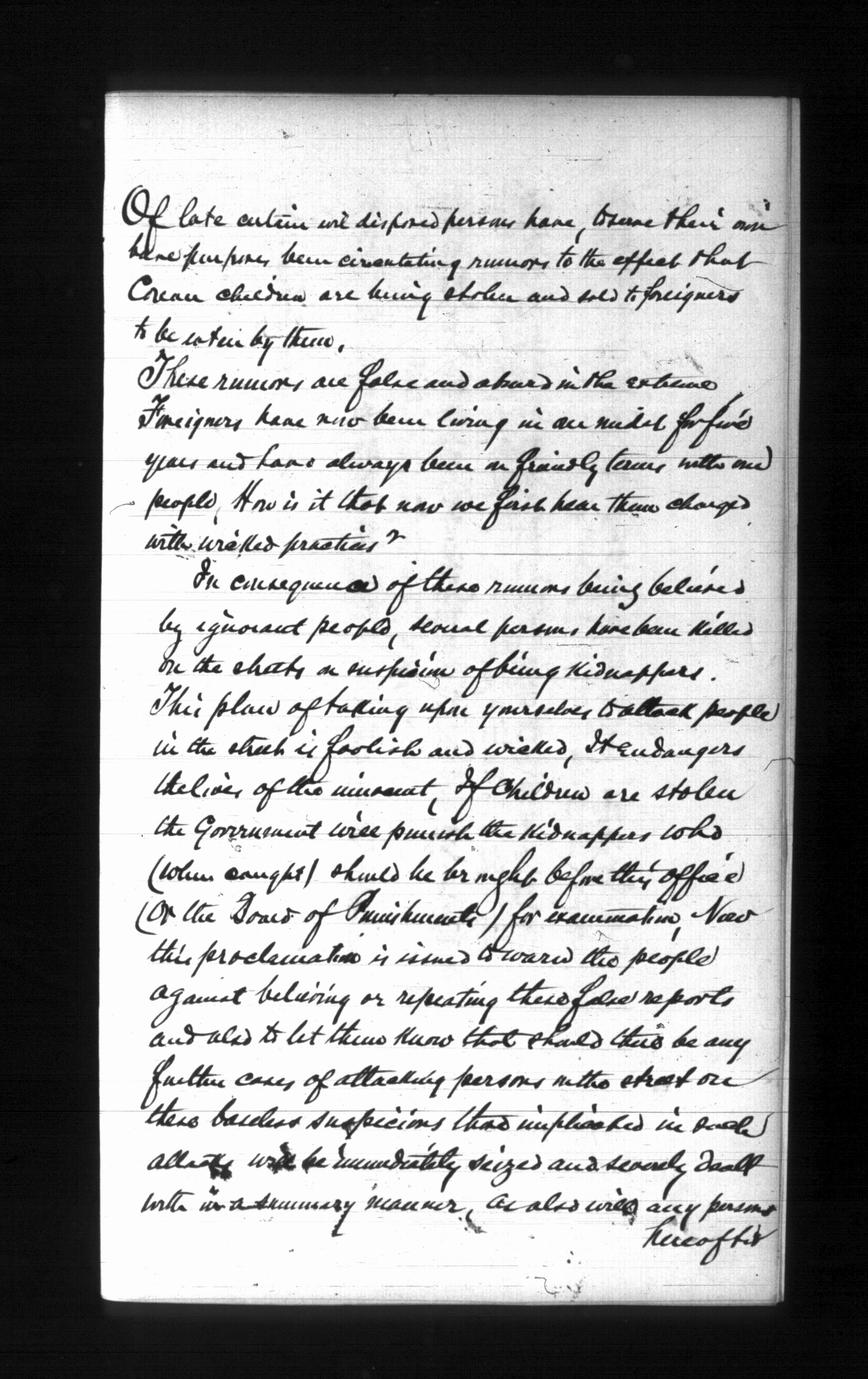 Of late certain evil disposed persons have, to serve their own
base purposes been circulating rumors to the effect that
Corean children are being stolen and sold to foreigners
to be eaten by them.
These rumors are false and absurd in the extreme,
Foreigners have now been living in our midst for five
years and have always been on friendly terms with our
people, How is it that now we first hear them charged
with wicked practices?
In consequence of these rumors being believed
by ignorant people, several persons have been killed
on the streets on suspicion of being kidnappers.
This plan of taking upon yourselves to attack people
in the street is foolish and wicked, It endangers
the lives of the innocent, If Children are stolen
the Government will punish the kidnappers who
(when caught) should be brought before this office
(or the Board of Punishments) for examination, Now
this proclamation is issued to warn the people
against believing or repeating these false reports
and also to let them know that should there be any
further cases of attacking persons in the street on
these baseless suspicions those implicated in such
attacks will be immediately seized and severely dealt
with in a summary manner, as also will any persons
hereafter